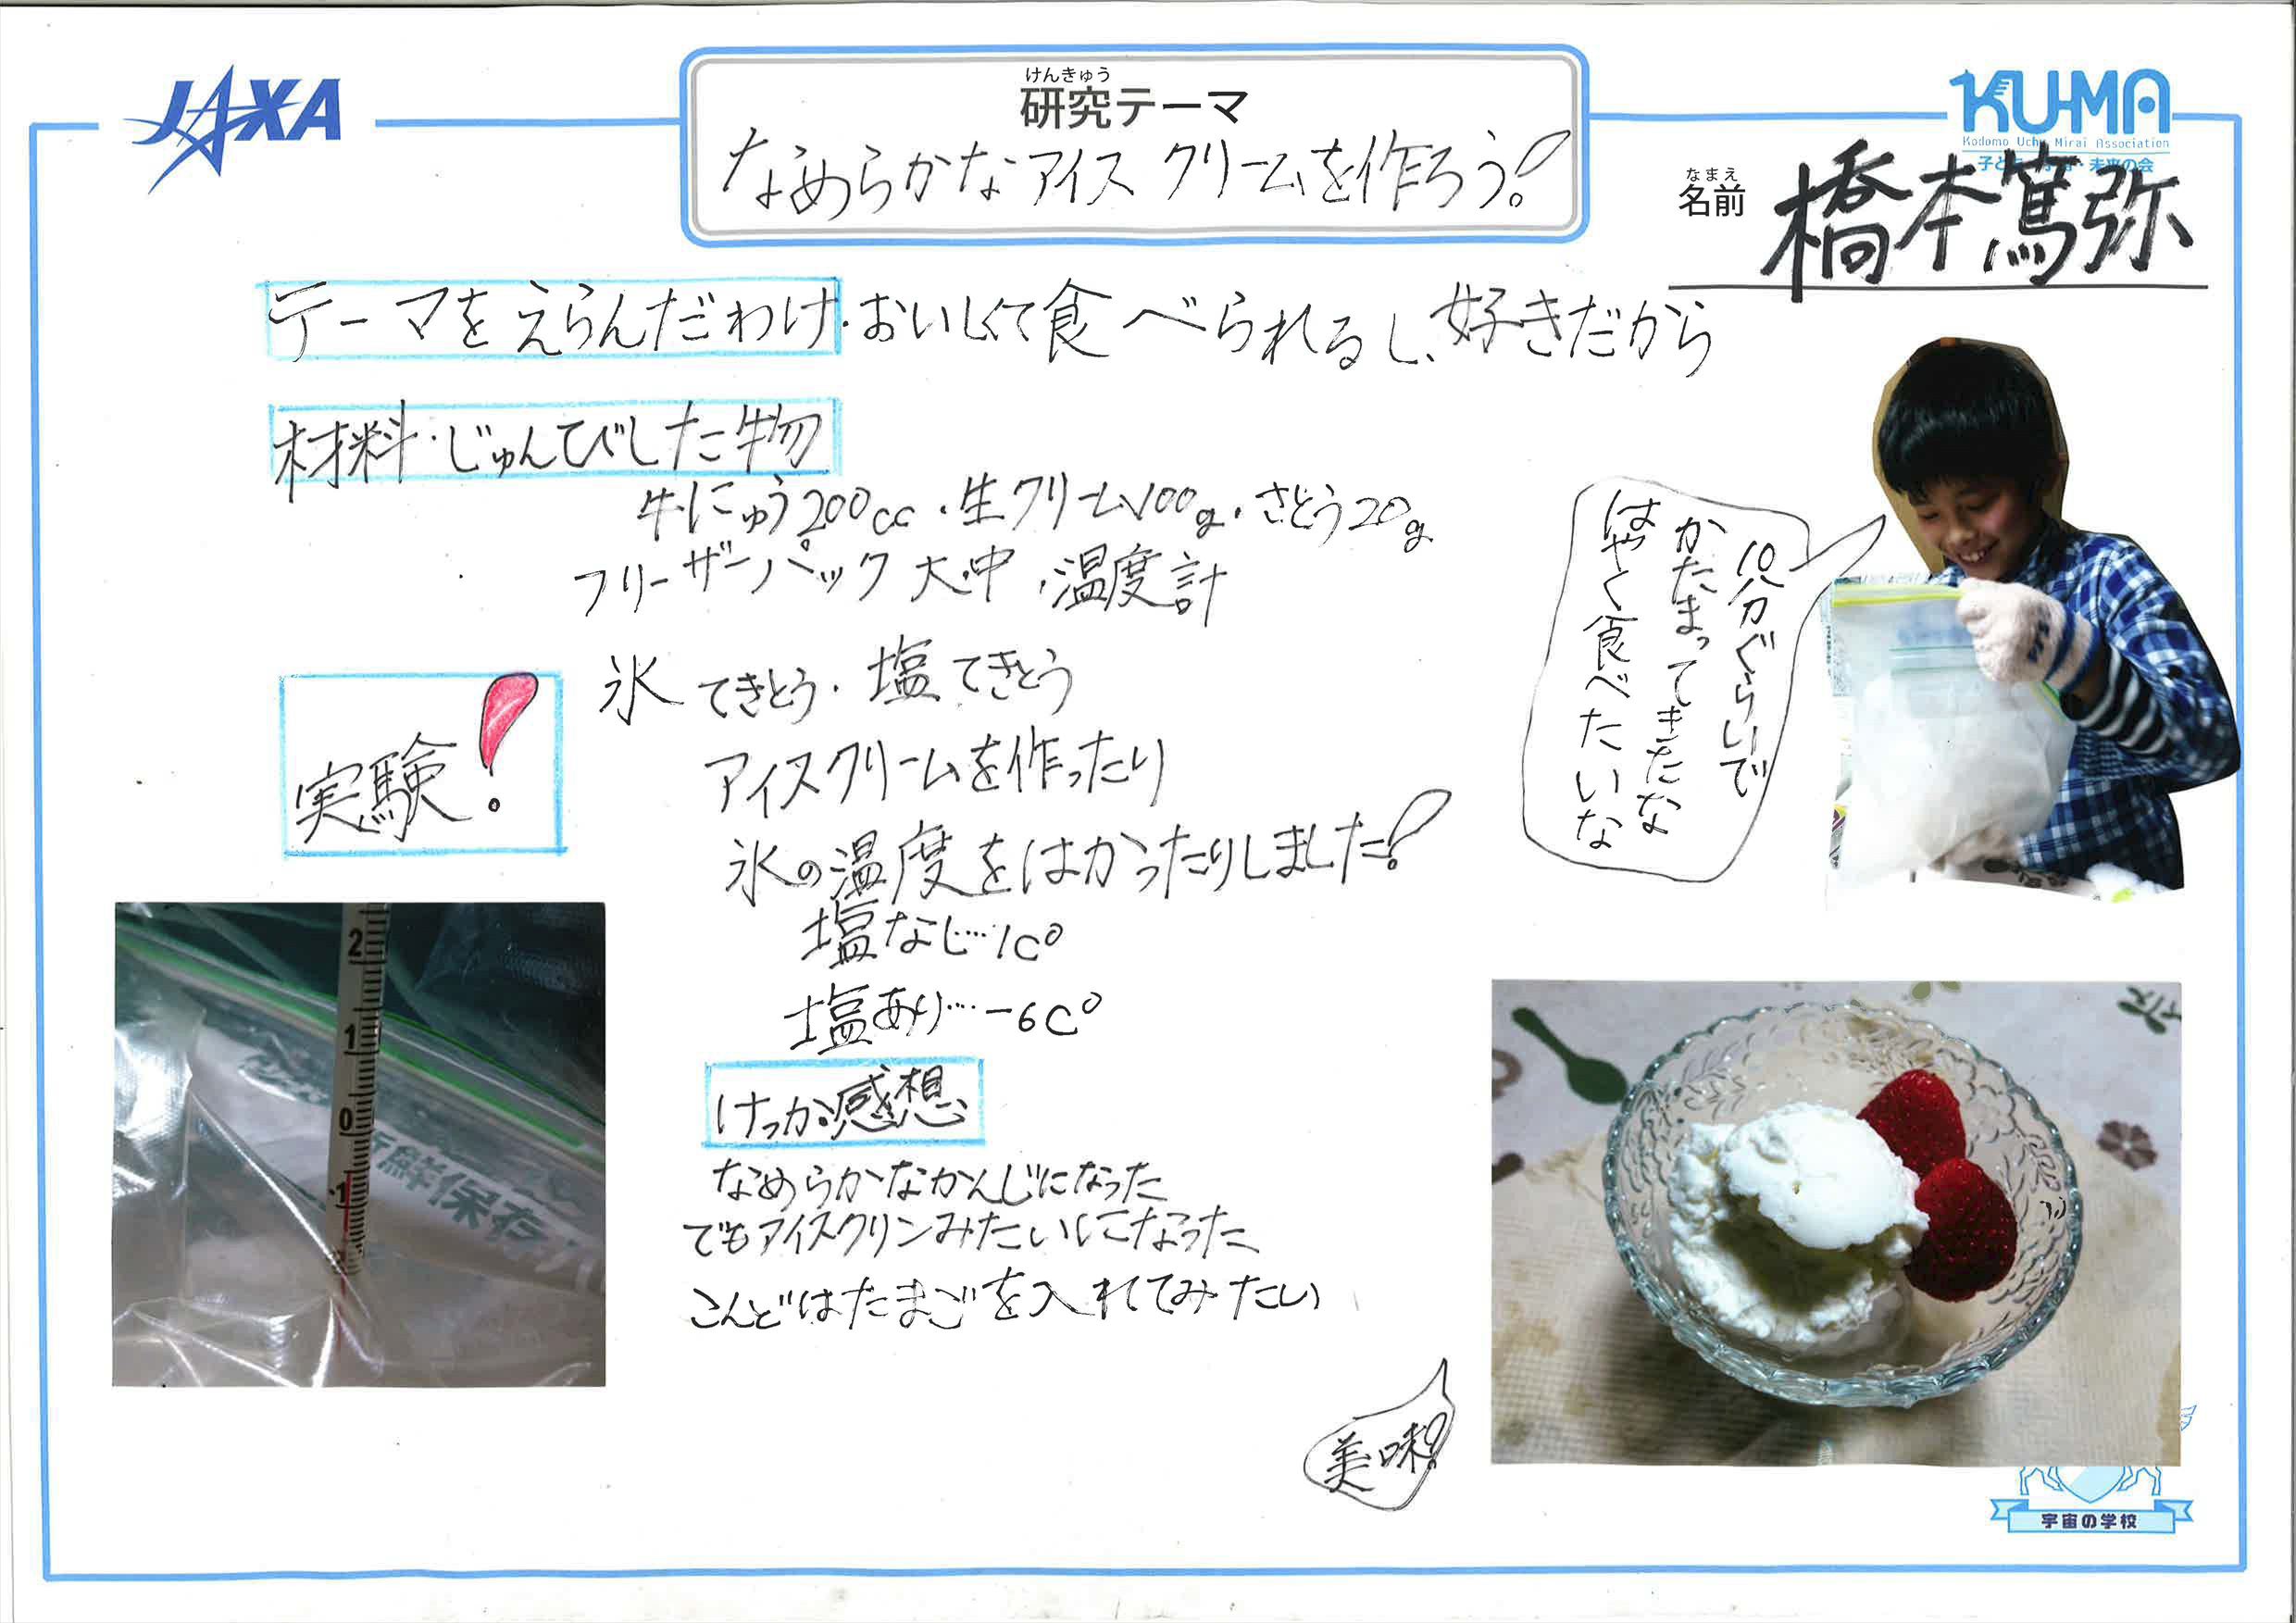 JAXA
けんきゅう
研究テーマ
なめらかなアイスクリームを作ろう!
KUMA
Kodomo Uchu Mirai Association
なまえ
名前
橋本篤弥
テーマをえらんだわけ・おいしくて食べられるし、好きだから
材料・じゅんびした物
牛にゅう200cc・生クリーム100g・さとう20g
フリーザーパック大・中・温度計
氷てきとう・塩てきとう
実験!
アイスクリームを作ったり
氷の温度をはかったりしました!
塩なし…1C°
塩あり…-6C°
けっか・感想
なめらかなかんじになった
でもアイスクリンみたいになった
こんどはたまごを入れてみたい
10分ぐらいで
かたまってきたな
はやく食べたいな
2
1
0
1
鮮保存
美味!
宇宙の学校